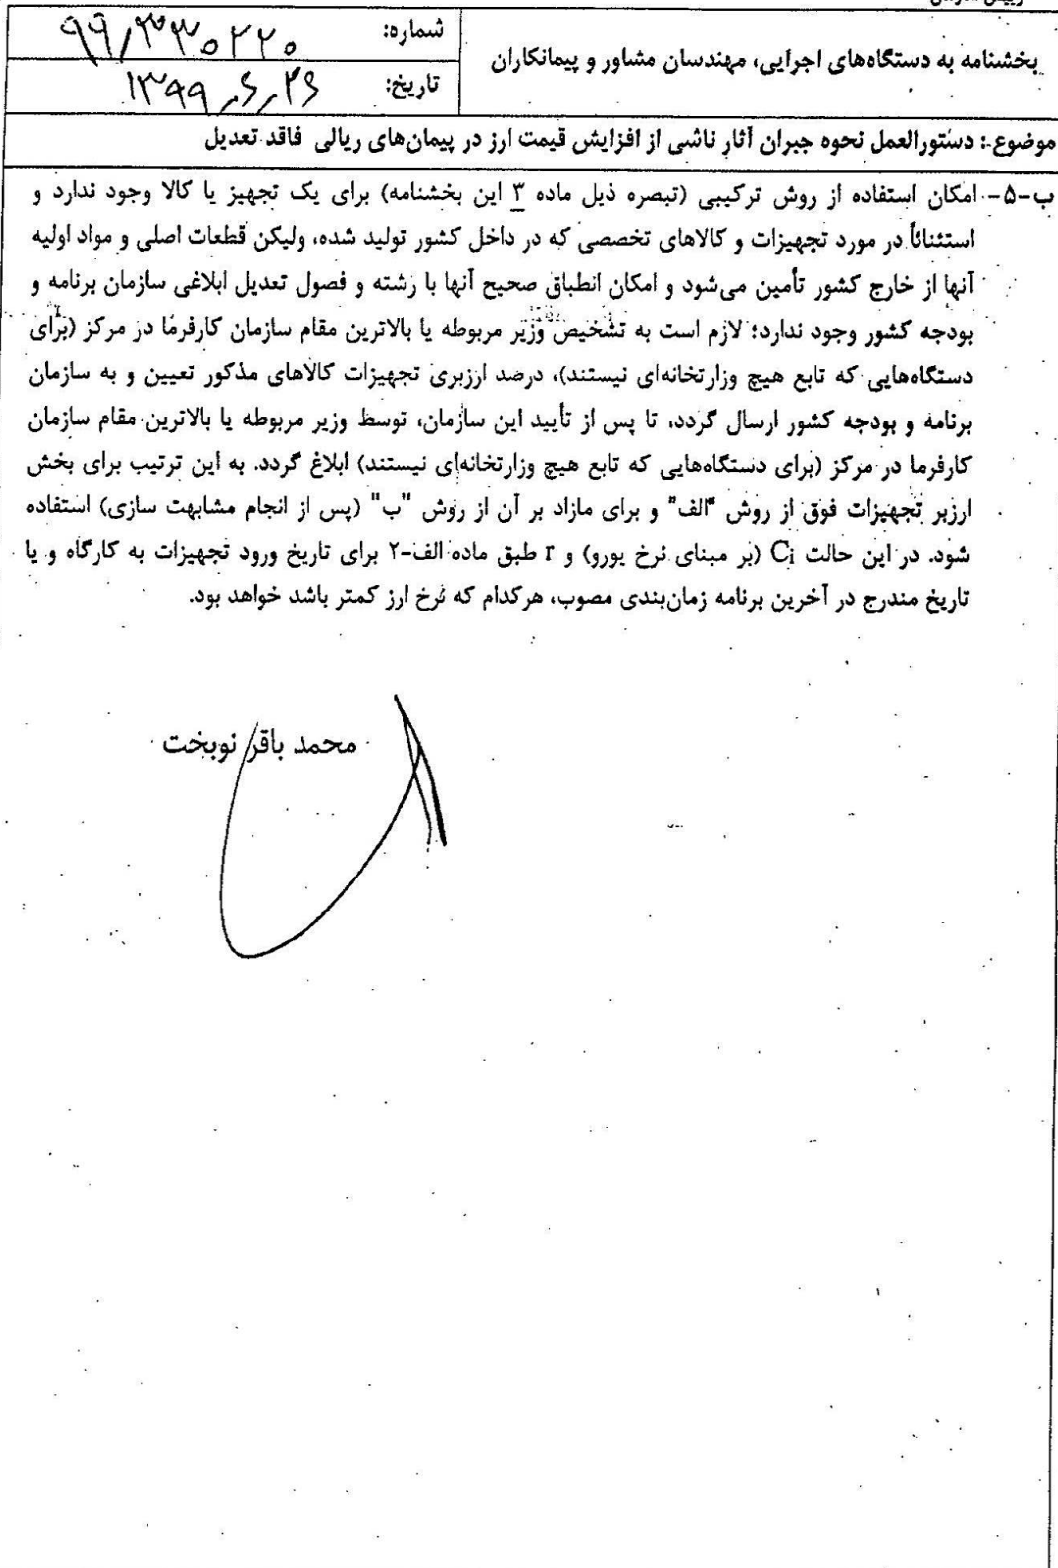 بخشنامه به دستگاه‌های اجرایی، مهندسان مشاور و پیمانکاران
شماره: ۹۹/۳۳۰۲۲۰
تاریخ: ۱۳۹۹/۶/۲۶
موضوع: دستورالعمل نحوه جبران آثار ناشی از افزایش قیمت ارز در پیمان‌های ریالی فاقد تعدیل
ب-۵- امکان استفاده از روش ترکیبی (تبصره ذیل ماده ۳ این بخشنامه) برای یک تجهیز یا کالا وجود ندارد و
استثنائاً در مورد تجهیزات و کالاهای تخصصی که در داخل کشور تولید شده، ولیکن قطعات اصلی و مواد اولیه
آنها از خارج کشور تأمین می‌شود و امکان انطباق صحیح آنها با رشته و فصول تعدیل ابلاغی سازمان برنامه و
بودجه کشور وجود ندارد؛ لازم است به تشخیص وزیر مربوطه یا بالاترین مقام سازمان کارفرما در مرکز (برای
دستگاه‌هایی که تابع هیچ وزارتخانه‌ای نیستند)، درصد ارزبری تجهیزات کالاهای مذکور تعیین و به سازمان
برنامه و بودجه کشور ارسال گردد، تا پس از تأیید این سازمان، توسط وزیر مربوطه یا بالاترین مقام سازمان
کارفرما در مرکز (برای دستگاه‌هایی که تابع هیچ وزارتخانه‌ای نیستند) ابلاغ گردد. به این ترتیب برای بخش
ارزبر تجهیزات فوق از روش "الف" و برای مازاد بر آن از روش "ب" (پس از انجام مشابهت سازی) استفاده
شود. در این حالت Ci (بر مبنای نرخ یورو) و r طبق ماده الف-۲ برای تاریخ ورود تجهیزات به کارگاه و یا
تاریخ مندرج در آخرین برنامه زمان‌بندی مصوب، هرکدام که نرخ ارز کمتر باشد خواهد بود.
محمد باقر نوبخت